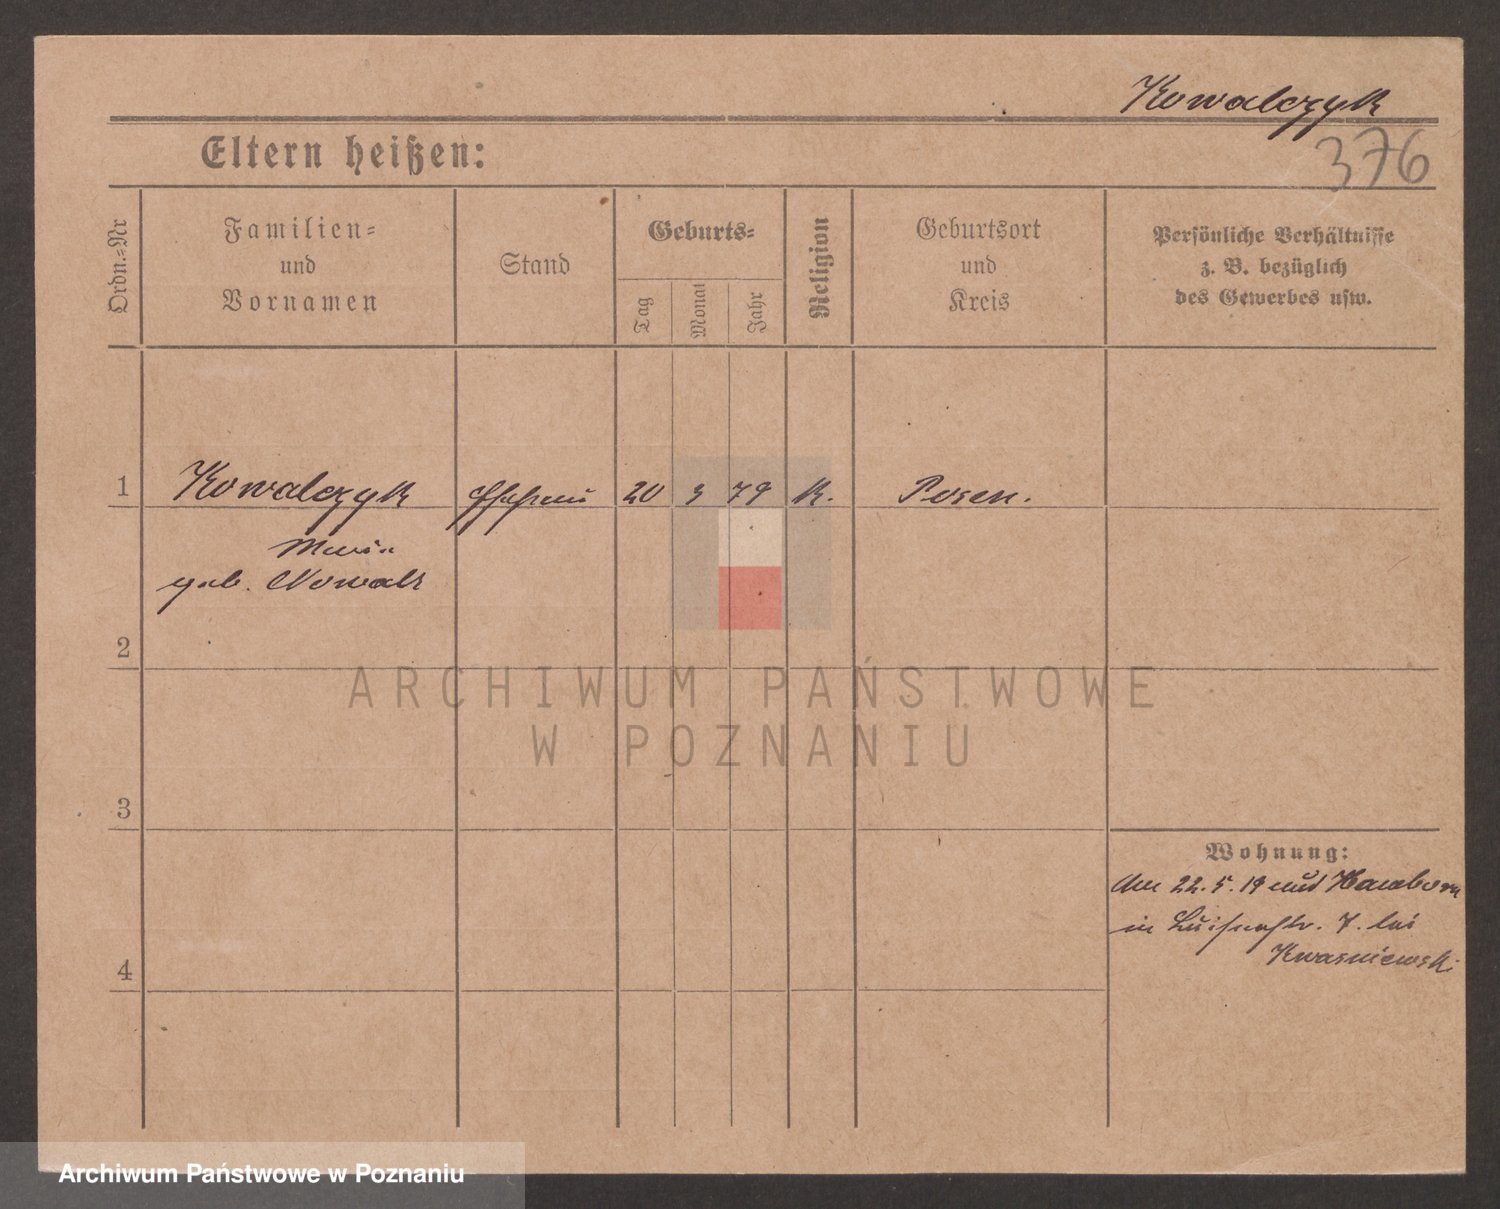 Kowalczyk
376
Eltern heißen:
Ordn.-Nr
Familien-
und
Vornamen
Stand
Geburts-
Tag
Monat
Jahr
Religion
Geburtsort
und
Kreis
Persönliche Verhältnisse
z. B. bezüglich
des Gewerbes usw.
1 Kowalczyk Ehefrau 20 3 79 K. Posen.
Maria
geb. Nowak
2
ARCHIWUM PAŃSTWOWE
W POZNANIU
3
Wohnung:
Am 22. 5. 19 aus Hamborn
in Luisenstr. 7. bei
Kwasniewski
4
Archiwum Państwowe w Poznaniu